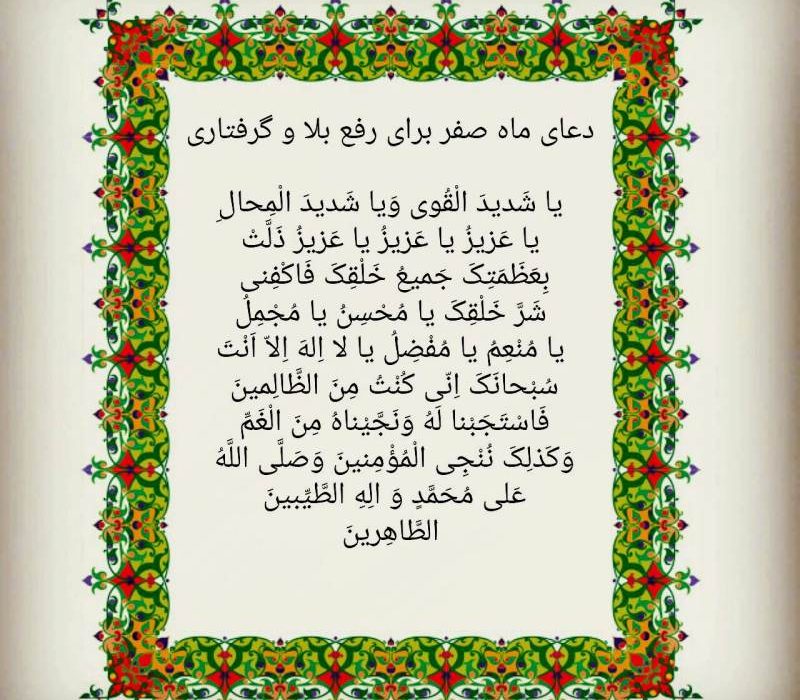 دعای ماه صفر برای رفع بلا و گرفتاری
یا شَدیدَ الْقُوی وَیا شَدیدَ الْمِحالِ
یا عَزیزُ یا عَزیزُ یا عَزیزُ ذَلَّتْ
بِعَظَمَتِکَ جَمیعُ خَلْقِکَ فَاکْفِنی
شَرَّ خَلْقِکَ یا مُحْسِنُ یا مُجْمِلُ
یا مُنْعِمُ یا مُفْضِلُ یا لا اِلهَ اِلاّ اَنْتَ
سُبْحانَکَ اِنّی کُنْتُ مِنَ الظَّالِمینَ
فَاسْتَجَبْنا لَهُ وَنَجَّیْناهُ مِنَ الْغَمِّ
وَکَذلِکَ نُنْجِی الْمُؤْمِنینَ وَصَلَّی اللَّهُ
عَلی مُحَمَّدٍ وَ الِهِ الطَّیِّبینَ
الطَّاهِرینَ